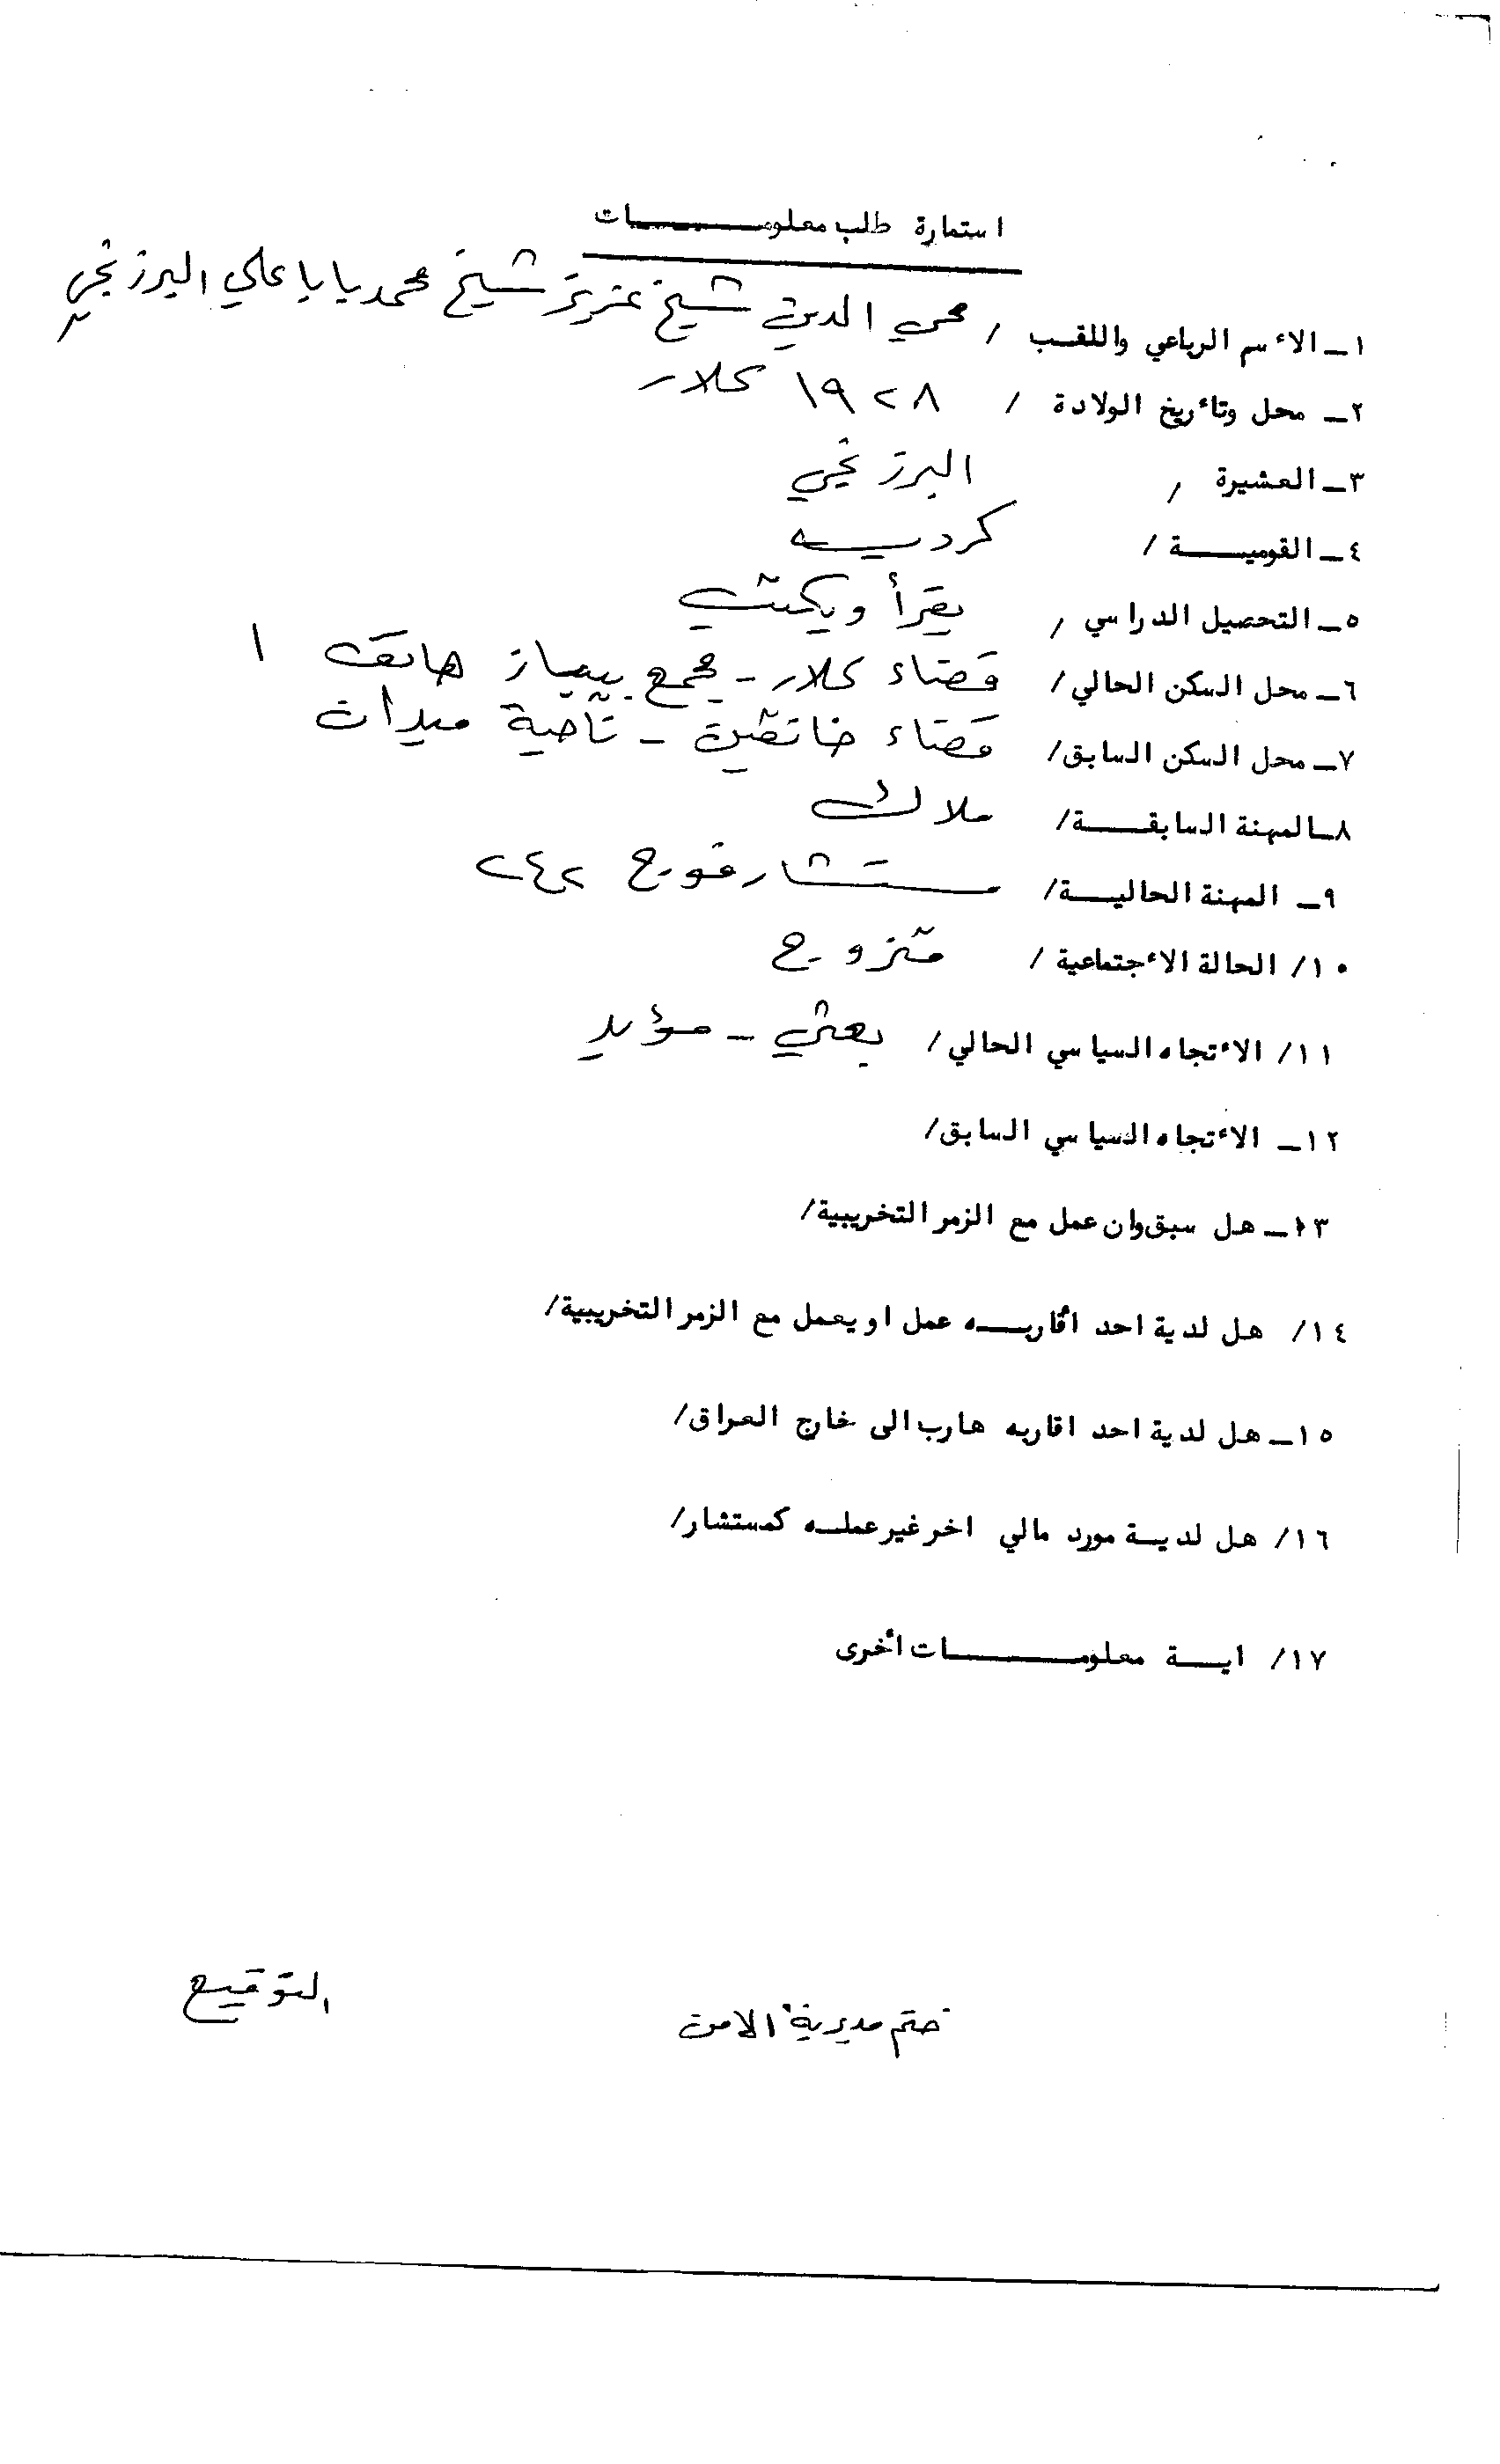 استمارة طلب معلومـــــــات
١ـ الاٴسم الرباعي واللقـب / محي الدين شيخ عزيز شيخ محمد بابا علي البرزنجي
٢ـ محل وتاٴريخ الولادة / ١٩٢٨ كلار
٣ـ العشيرة / البرزنجي
٤ـ القوميـــــة / كرديه
٥ـ التحصيل الدراسي / يقرأ ويكتب
٦ـ محل السكن الحالي / قضاء كلار - مجمع بيباز هاتف ١
٧ـ محل السكن السابق / قضاء خانقين - ناحية ميدان
٨ـالمهنة السابقـــــة / ملاك
٩ـ المهنة الحاليــــة / مستشار فوج ٢٤٢
١٠/ الحالة الاٴجتماعية / متزوج
١١/ الاٴتجاه السياسي الحالي / بعثي - مؤيد
١٢ـ الاٴتجاه السياسي السابق /
١٣ـ هل سبق وان عمل مع الزمر التخريبية /
١٤/ هل لدية احد اٴقاربـــه عمل او يعمل مع الزمر التخريبية /
١٥ـ هل لدية احد اقاربه هارب الى خارج العراق /
١٦/ هل لديــة مورد مالي اخر غير عملــه كمستشار /
١٧/ ايـــة معلومـــــــات اٴخرى
التوقيع
ختم مديرية الامن